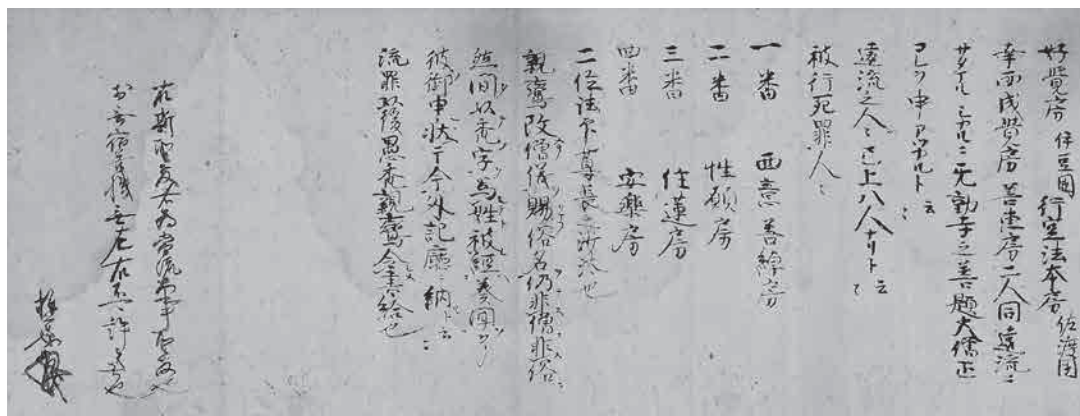 好覺房 伊豆國 行空法本房 佐渡國
幸西成覺房 善恵房二人同遠流ニ
サタマル シカルニ无動寺之善題大僧正
コレヲ申アツカルト云々
遠流之人々已上八人ナリト云々
被行死罪人々
一番 西意善綽房
二番 性願房
三番 住蓮房
四番 安樂房
二位法印尊長之沙汰也
親鸞改僧儀賜俗名仍非僧非俗
然間以禿字為姓被經奏聞了
彼御申状于今外記廳ニ納ト云々
流罪以後愚禿親鸞令書給也
右斯聖教者為當流大事聖教也
於无宿善機无左右不可許之者也